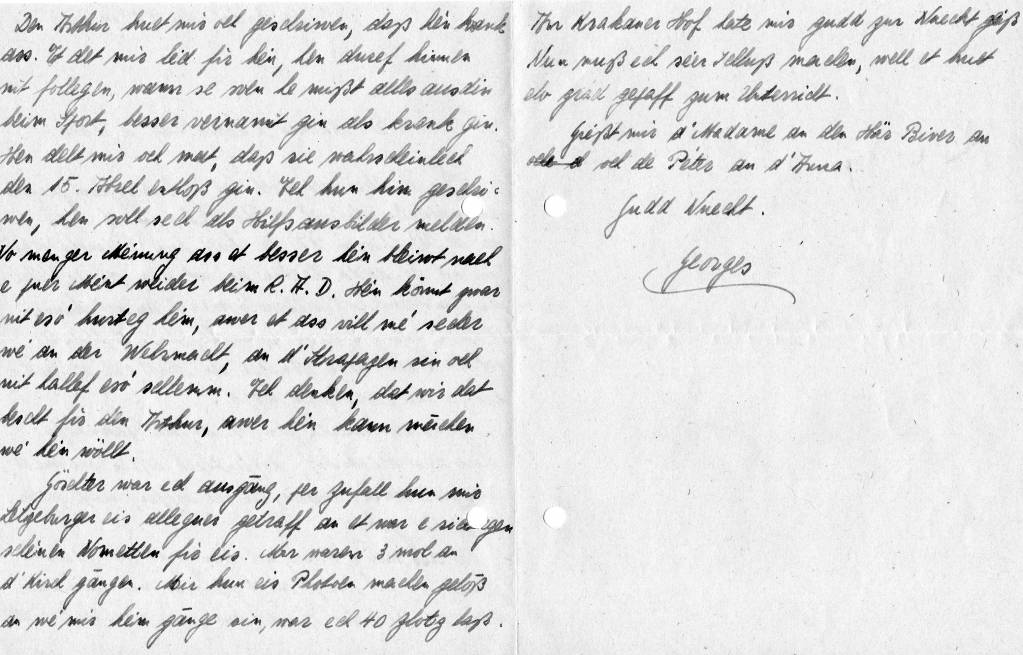 Den Arthur huet mir och geschriwen, daß hien krank
ass. Et det mir léd fir hien, hien duref hinnen
nit follegen, wann se soen he mißt alles ausdin
beim Sport, besser vernannt gin als krank gin.
Hen delt mir och mat, daß sie wahrscheinlech
den 15. Abrel entloß gin. Ech hun him geschri-
wen, hen soll sech als Hilfsausbilder melden.
No menger Ménung ass et besser hien bleiwt nach
e puer Mént weider beim R.A.D. Hien kömmt zwar
nit esó hurteg hém, awer et ass vill mé secher
wé an der Wehrmacht, an d'Strapazen sin och
nit hallef esó schlemm. Ech denken, dat wir dat
bescht fir den Arthur, awer hien kann maachen
wé hien wöllt.
Göschter war ech ausgäng, per Zufall hun mir
Letzeburger eis alleguer getraff an et war e
schénen Nometteg fir eis. Mir waren 3 mol an
d'Kirch gängen. Mir hun eis Photoen machen geloß
an wé mir hém gänge sin, war ech 40 Zloty laß.
Der Krakauer Hof
Nun muß ech séier Schluß machen, well et huet
elo grad gepaff zum Unterricht.
Gréßt mir d'Madame an den Här Biver an
och de Péter an d'Anna.
Gudd Nuecht.
Georges